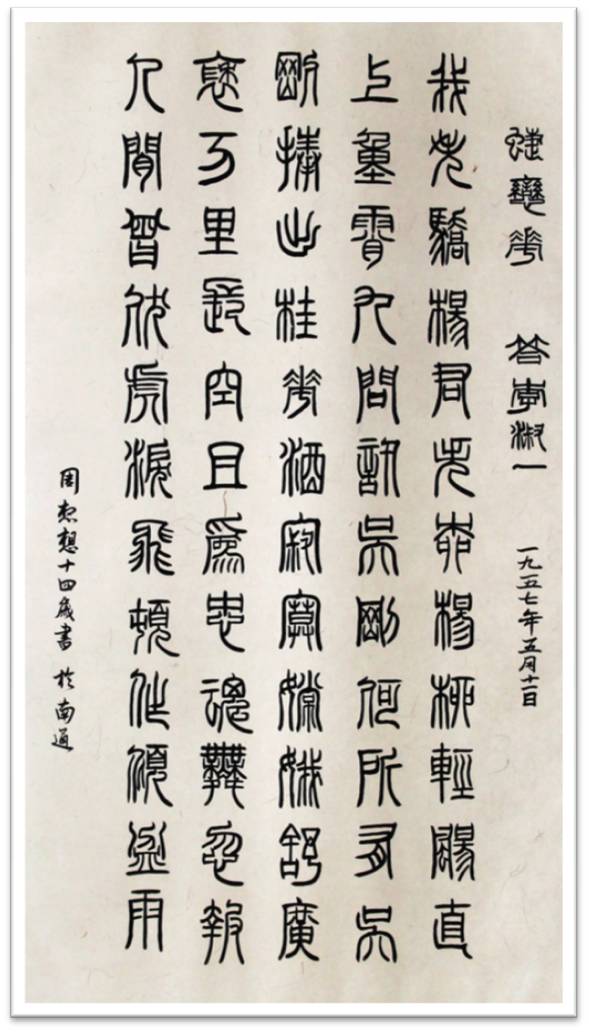 蝶戀花 答李淑一 一九五七年五月十一日
我失驕楊君失柳楊柳輕颺直
上重霄九問訊吳剛何所有吳
剛捧出桂花酒寂寞嫦娥舒廣
褎万里長空且為忠魂舞忽報
人間曾伏虎淚飛頓作傾盆雨
周想十四歲書 於南通